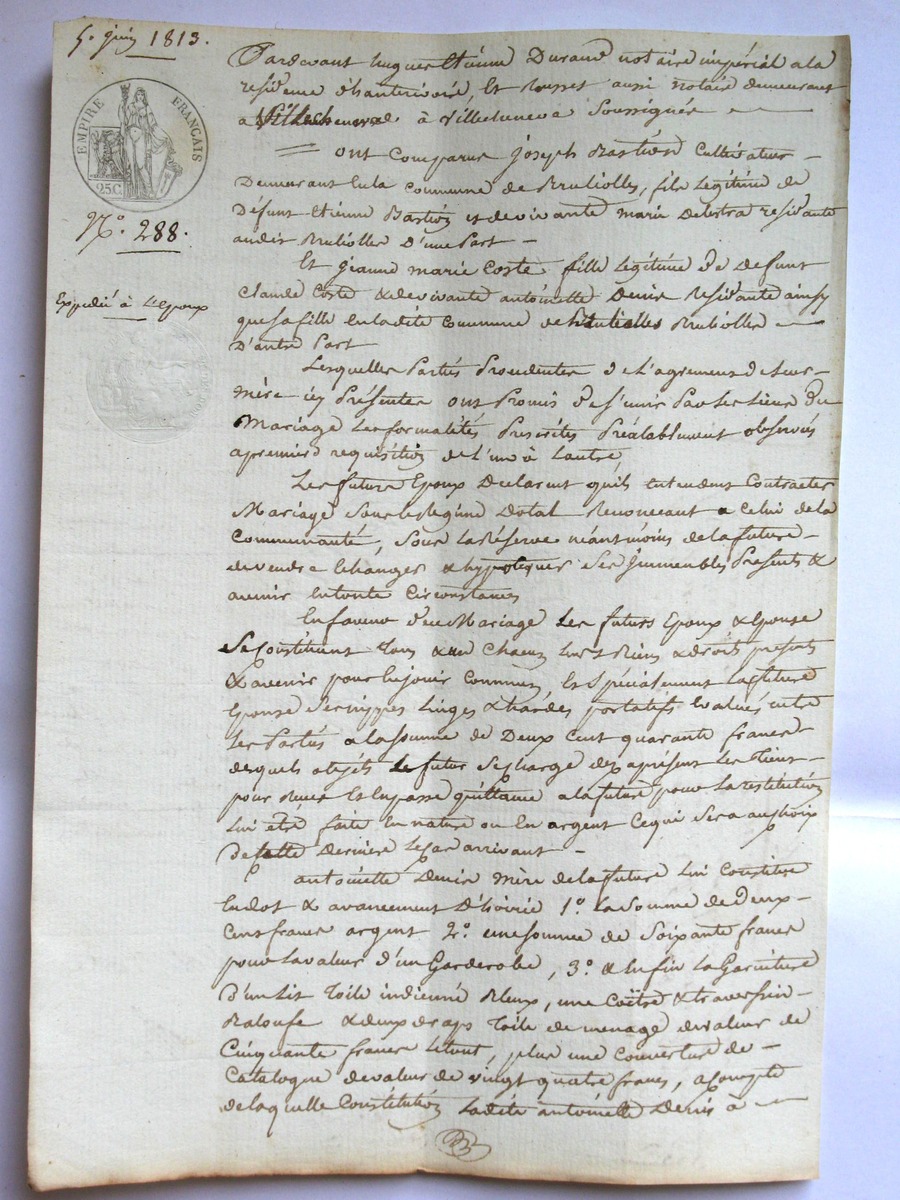 5. juin 1813.
EMPIRE FRANÇAIS
25 C.
N.° 288.
Expédié à L'Epoux
Pardevant hugues Etienne Durand notaire impérial a la
residence d'hauterivoire, Et Rousset aussi notaire demeurant
a à Villechenève Soussignés
ont Comparus joseph Bastion Cultivateur
Demeurant En la Commune de Brullolles, fils Légitime de
Défunt Etienne Bastion et de vivante marie Delestra residante
audit Brullolles D'une Part
Et jeanne marie Coste fille Légitime de Defunt
Claude Coste & de vivante antoinette Denis Residante ainsy
que sa fille En la dite Commune de Brullolles
D'autre Part
Lesquelles Parties Procedentes de L'agrement de leur
mère icy Présentes ont Promis de s'unir Par les Liens du
Mariage Les formalités Prescrites Préalablement observées
a premiere requisition de L'un à L'autre
Les futurs Epoux Declarent qu'ils Entendent Contracter
Mariage Sous le Regime Dotal Renoncant a Celui de la
Communauté, Sous La Réserve néantmoins de la future
de vendre Echanger & hypotequer Ses Immeubles Presents &
avenir En toute Circonstances
En faveur de ce Mariage Les futurs Epoux & Epouse
Se Constituent Tous & un Chacun Leurs Biens & droits presents
& avenir pour En jouir Commun, Et Spécialement La future
Epouse Ses nippes Linges & hardes portatifs Evalués entre
Les Parties a La Somme de Deux Cent quarante francs
desquels objets Le futur Se Charge dez apresent Les Tient
pour Reçus Et En passe quittance a la future pour La restitution
Lui être faite En nature ou En argent Ce qui Sera au Choix
De Cette Derniere Le Cas arrivant
antoinette Denis mère de la future Lui Constitue
En dot & avancement D'hoirie 1.° La Somme de Deux
Cent francs argent 2.° une Somme de Soixante francs
pour La valeur d'un Garderobe, 3.° & Enfin La Garniture
D'un Lit Toile indienne Bleux, une Coëtre & traversin
Baloufe & deux draps Toile de menage de valeur de
Cinquante francs Le tout, plus une Couverture de
Catalogne de valeur de vingt quatre francs, a Compte
de laquelle Constitution Ladite antoinette Denis à